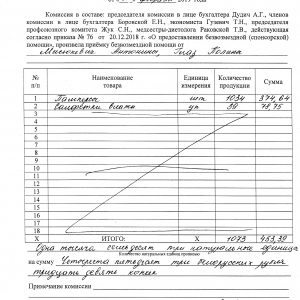 Комиссия в составе: председателя комиссии в лице бухгалтера Дудич А.Г., членов
комиссии в лице бухгалтера Боровской Е.Н., экономиста Гуневич Т.Н., председателя
профсоюзного комитета Жук С.Н., медсестры-диетолога Раковской Т.В., действующая
согласно приказа № 76 от 20.12.2018 г. «О предоставлении безвозмездной (спонсорской)
помощи», произвела приёмку безвозмездной помощи от
Глаз Полина
№ п/п Наименование товара Единица измерения Количество продукции Сумма
1 Памперсы шт 1034 374,64
2 Салфетки влажн уп 39 78,75
3
4
5
6
7
8
9
10
11
12
13
14
15
16
17
18
Х ИТОГО: Х 1073 453,39
Одна тысяча семьдесят три натуральные единицы
Количество натуральных единиц прописью
на сумму Четыреста пятьдесят три белорусских рубля
тридцать девять копеек
Примечание комиссии